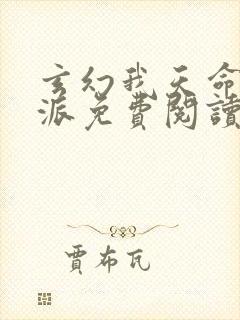 玄幻我天命
派免費閱讀
賈布瓦